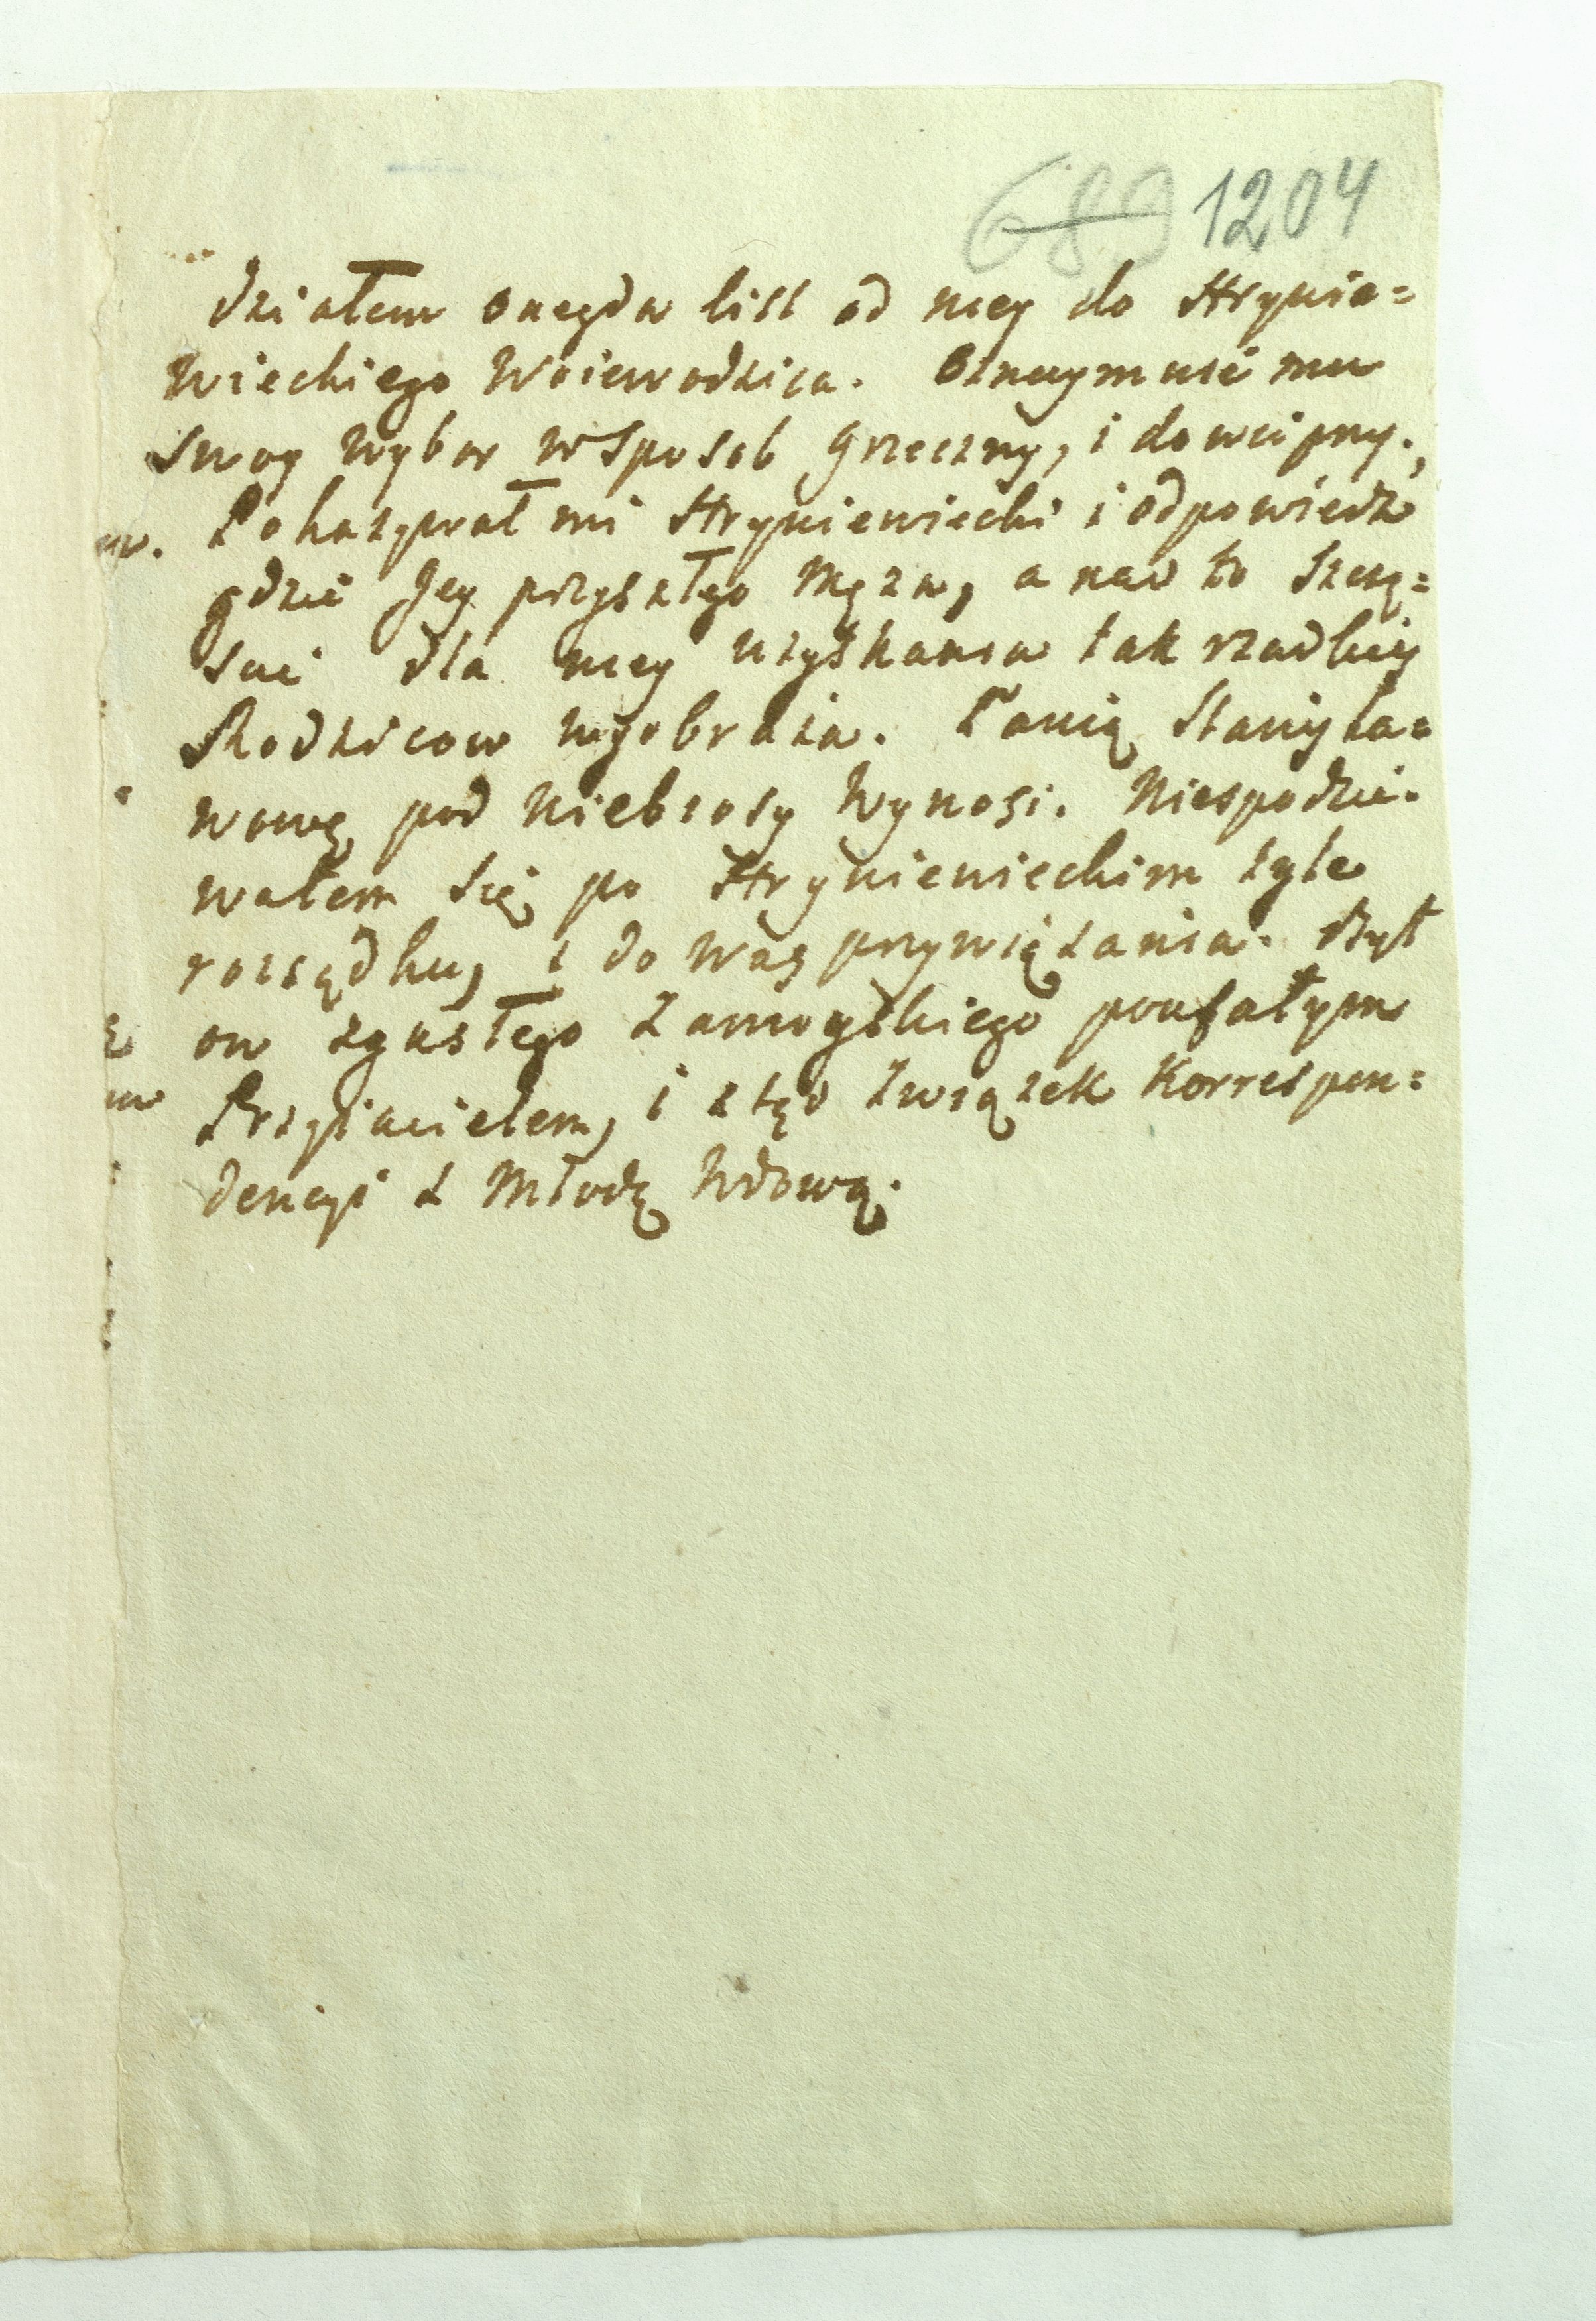 689 1204
działem onegda list od niey do Hrynie=
wieckiego Woiewodzica. Oznaymuie mu
swoy wybor w sposob grzeczny, i dowcipny.,
Pokazywał mi Hryniewiecki i odpowiedz
gdzie Jey przyszłego Męża, a nad to szczę=
scie dla niey uzyskania tak rzadkich
Rodzicow wyobraża. Panią Stanisła=
wową pod Niebiosy wynosi. Niespodzie=
wałem się po Hryniewieckim tyle
rozsądku, i do Was przywiązania. Był
on zgasłego Zamoyskiego poufałym
Przyiacielem, i ztąd związek Korrespon=
dencyi z Młodą Wdową.